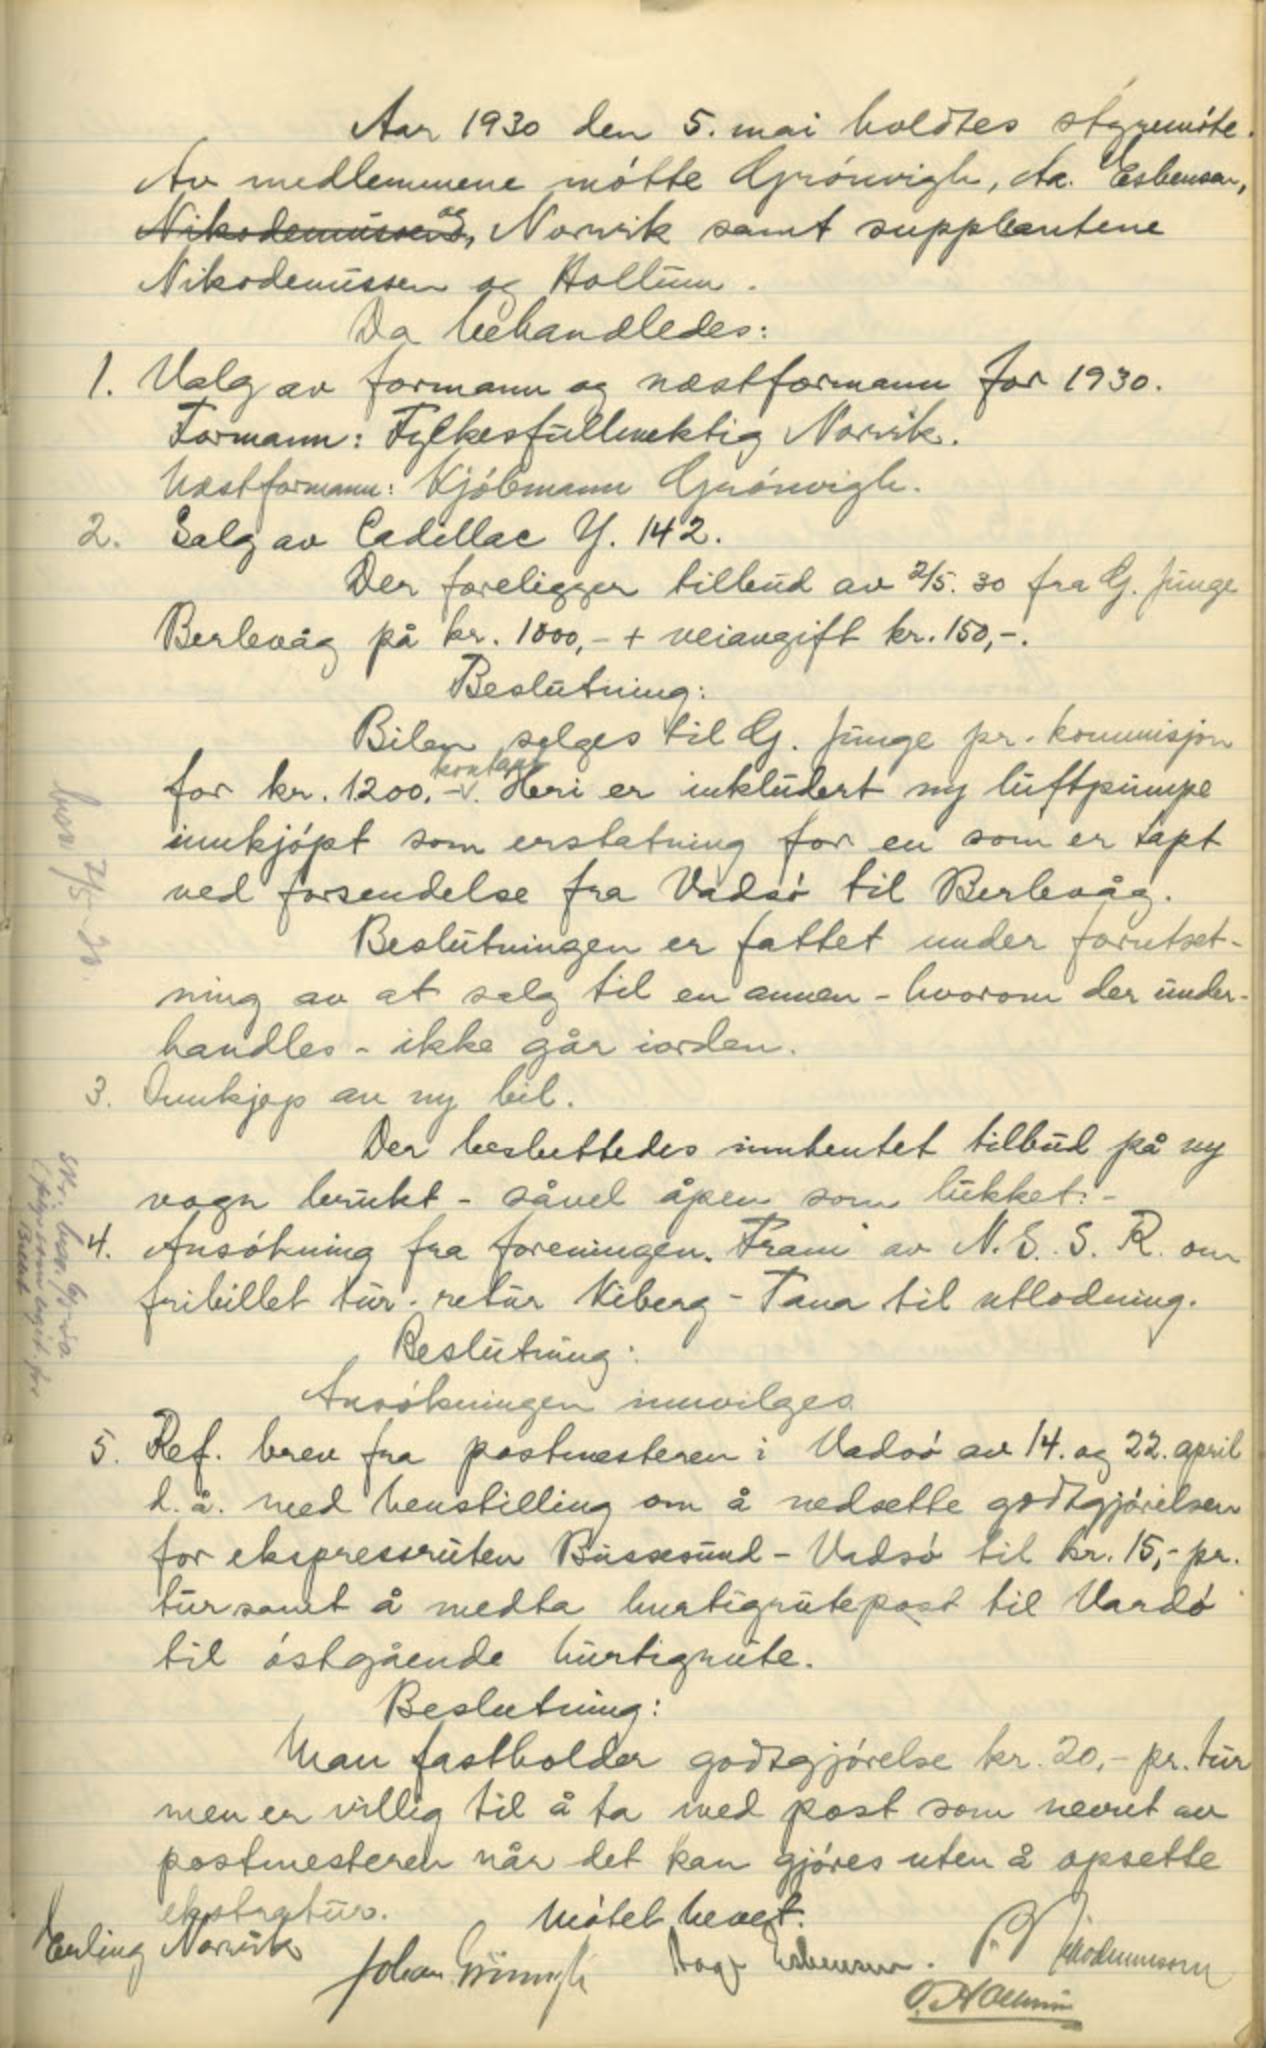 Aar 1930 den 5. mai holdtes styremöte.
Av medlemmene mötte Grönvigh, Aa. Esbensen,
Nikodemussen, og Norvik samt supplentene
Nikodemussen og Hollum.
Da behandledes:
1. Valg av formann og næstformann for 1930.
Formann: Fylkesfullmektig Norvik.
Næstformann: Kjöbmann Grönvigh.
2. Salg av Cadillac Y. 142.
Der foreligger tilbud av 2/5. 30 fra G. Junge
Berlevåg på kr. 1000,- + veiavgift kr. 150,-.
Beslutning:
Bilen selges til G. Junge pr. kommisjon
for kr. 1200,- kontant. Heri er inkludert ny luftpumpe
innkjöpt som erstatning for en som er tapt
ved forsendelse fra Vadsö til Berlevåg.
Beslutningen er fattet under forutset-
ning av at salg til en annen - hvorom der under-
handles - ikke går iorden.
3. Innkjøp av ny bil.
Der besluttedes innhentet tilbud på ny
vogn brukt - såvel åpen som lukket. -
4. Ansökning fra foreningen "Fram" av N. S. S. R. om
fribillet tur-retur Kiberg - Tana til utlodning.
Beslutning:
Ansökningen innvilges.
5. Ref. brev fra postmesteren i Vadsö av 14. og 22. april
d. å. med henstilling om å nedsette godtgjörelsen
for ekspressruten Bussesund - Vadsö til kr. 15,- pr.
tur samt å medta hurtigrutepost til Vardö
til östgående hurtigrute.
Beslutning:
Man fastholder godtgjörelse kr. 20,- pr. tur
men er villig til å ta med post som nevnt av
postmesteren når det kan gjöres uten å opsette
ekstratur.
Mötet hevet.
Erling Norvik
Johan Grönvigh
Aage Esbensen.
P. Nikodemussen
P. Hollum
brev 7/5-30.
skr. brev 6/5-30